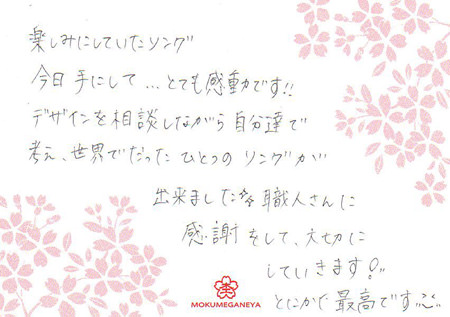 楽しみにしていたリング
今日手にして...とても感動です!!
デザインを相談しながら自分達で
考え、世界でだった ひとつの リングが
出来ました☆☆職人さんに
感謝をして、大切に
していきます!!
とにかく最高です
MOKUMEGANEYA